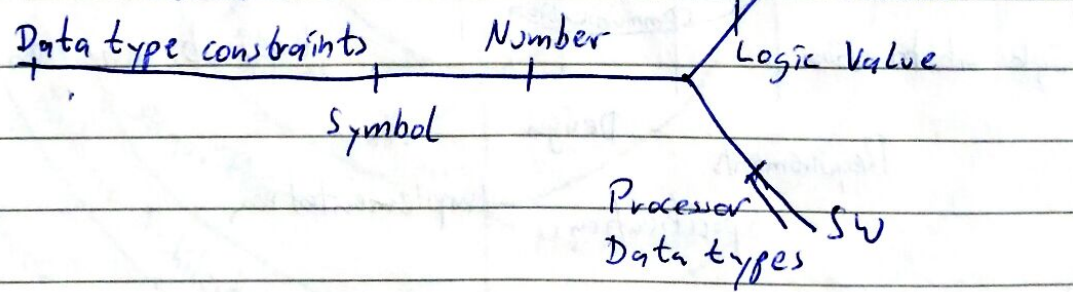 Data type constraints
Number
Logic Value
Symbol
Processor
Data types
SW